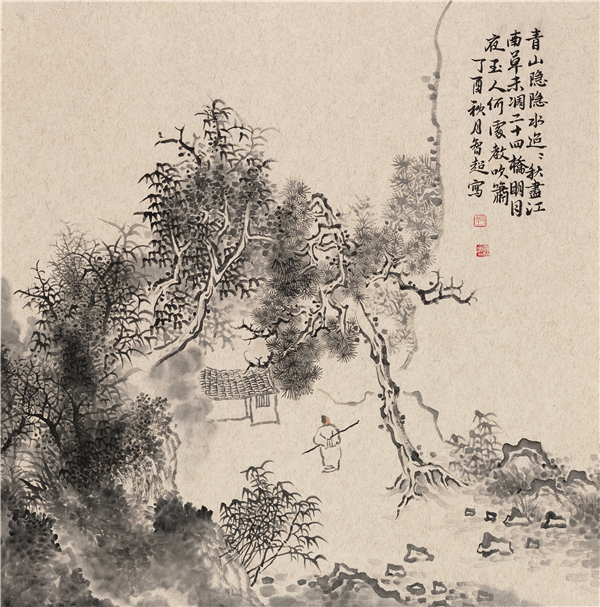 青山隐隐水迢々秋盡江
南草未凋二十四橋明月
夜玉人何處教吹簫
丁酉秋月智超寫